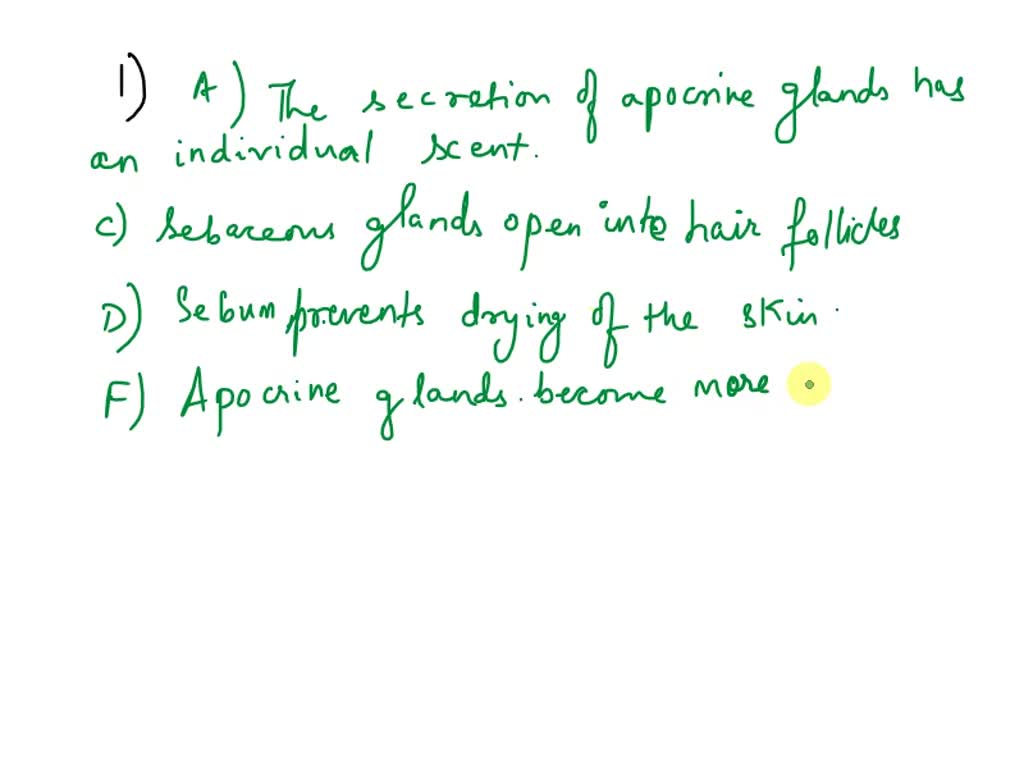 1) A) The secretion of apocrine glands has
an individual scent.
C) Sebaceous glands open into hair follicles
D) Sebum prevents drying of the skin.
F) Apocrine glands. become more